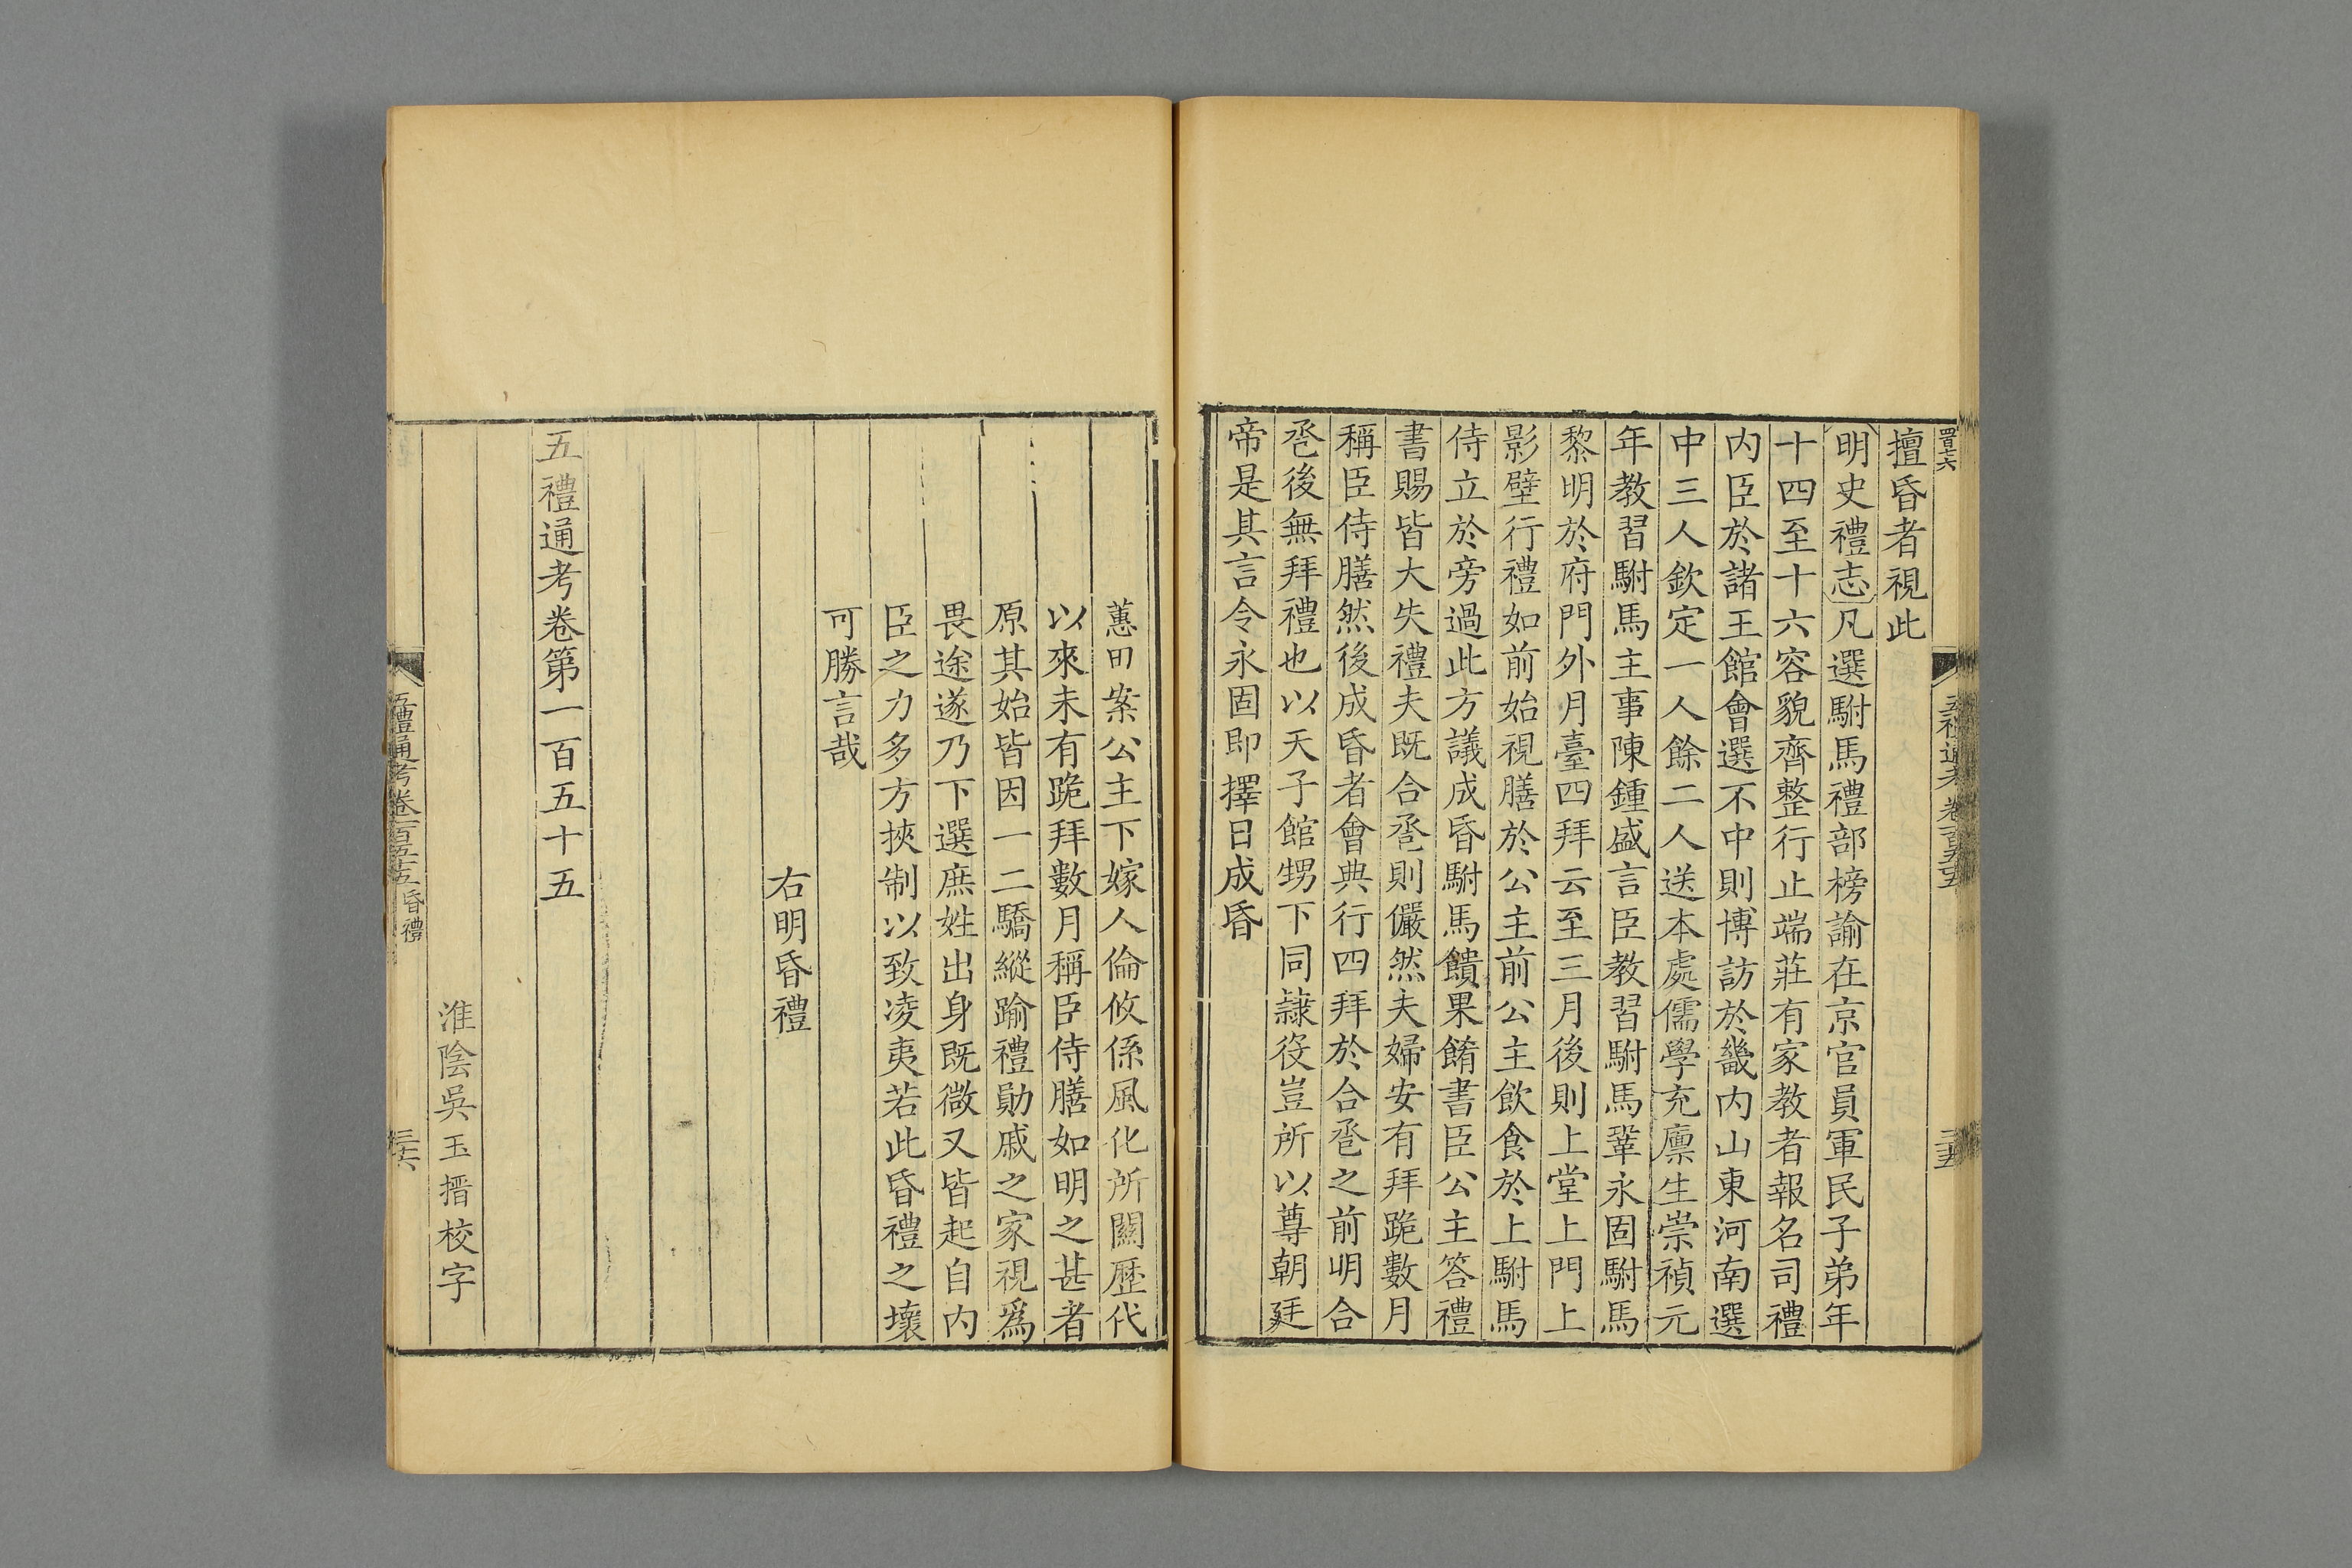 擅昏者視此
明史禮志凡選駙馬禮部榜諭在京官員軍民子弟年
十四至十六容貌齊整行止端莊有家教者報名司禮
内臣於諸王館會選不中則博訪於畿内山東河南選
中三人欽定一人餘二人送本處儒學充廩生崇禎元
年教習駙馬主事陳鍾盛言臣教習駙馬鞏永固駙馬
黎明於府門外月臺四拜云至三月後則上堂上門上
影壁行禮如前始視膳於公主前公主飲食於上駙馬
侍立於旁過此方議成昏駙馬饋果餚書臣公主答禮
書賜皆大失禮夫既合卺則儼然夫婦安有拜跪數月
稱臣侍膳然後成昏者會典行四拜於合卺之前明合
卺後無拜禮也以天子館甥下同隷役豈所以尊朝廷
帝是其言令永固即擇日成昏
蕙田案公主下嫁人倫攸係風化所關歴代
以來未有跪拜數月稱臣侍膳如明之甚者
原其始皆因一二驕縱踰禮勛戚之家視爲
畏途遂乃下選庶姓出身既微又皆起自内
臣之力多方挾制以致凌夷若此昏禮之壞
可勝言哉
右明昏禮
五禮通考卷第一百五十五
淮陰吳玉搢校字
五禮通考卷一百五十五 昏禮
三十六